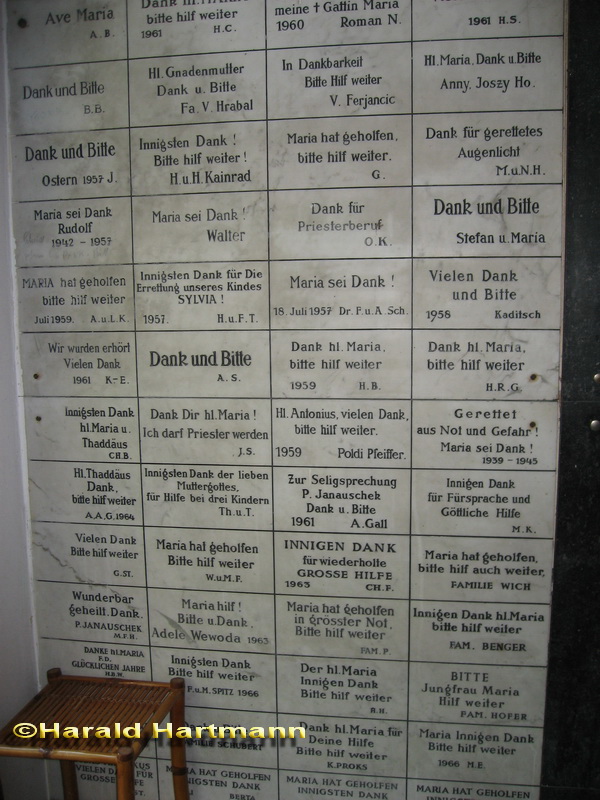 Ave Maria
A. B.
bitte hilf weiter
1961 H.C.
meine † Gattin Maria
1960 Roman N.
1961 H.S.
Dank und Bitte
B.B.
Hl. Gnadenmutter
Dank u. Bitte
Fa. V. Hrabal
In Dankbarkeit
Bitte Hilf weiter
V. Ferjancic
Hl. Maria, Dank u. Bitte
Anny. Joszy Ho.
Dank und Bitte
Ostern 1957 J.
Innigsten Dank !
Bitte hilf weiter !
H.u.H. Kainrad
Maria hat geholfen,
bitte hilf weiter.
G.
Dank für gerettetes
Augenlicht
M.u.N.H.
Maria sei Dank
Rudolf
1942 - 1957
Maria sei Dank !
Walter
Dank für
Priesterberuf
O.K.
Dank und Bitte
Stefan u. Maria
MARIA hat geholfen
bitte hilf weiter
Juli 1959. A.u.L.K.
Innigsten Dank für Die
Errettung unseres Kindes
SYLVIA !
1957. H.u.F.T.
Maria sei Dank !
18. Juli 1957 Dr. F.u.A. Sch.
Vielen Dank
und Bitte
1958 Kaditsch
Wir wurden erhört
Vielen Dank
1961 K.-E.
Dank und Bitte
A.S.
Dank hl. Maria,
bitte hilf weiter
1959 H.B.
Dank hl. Maria,
bitte hilf weiter
H.R.G.
Innigsten Dank
hl. Maria u.
Thaddäus
CH.B.
Dank Dir hl. Maria !
Ich darf Priester werden
J.S.
Hl. Antonius, vielen Dank,
bitte hilf weiter.
1959 Poldi Pfeiffer.
Gerettet
aus Not und Gefahr !
Maria sei Dank !
1939 - 1945
Hl. Thaddäus
Dank,
bitte hilf weiter
A.A.G. 1964
Innigsten Dank der lieben
Muttergottes,
für Hilfe bei drei Kindern
Th.u.T.
Zur Seligsprechung
P. Janauschek
Dank u. Bitte
1961 A. Gall
Innigen Dank
für Fürsprache und
Göttliche Hilfe
M.K.
Vielen Dank
Bitte hilf weiter
G. ST.
Maria hat geholfen
Bitte hilf weiter
W.u.M.F.
INNIGEN DANK
für wiederholte
GROSSE HILFE
1963 CH.F.
Maria hat geholfen,
bitte hilf auch weiter,
FAMILIE WICH
Wunderbar
geheilt. Dank.
P. JANAUSCHEK
M.F.H.
Maria hilf !
Bitte u. Dank.
Adele Wewoda 1963
Maria hat geholfen
in grösster Not,
Bitte hilf weiter
FAM. P.
Innigen Dank hl. Maria
bitte hilf weiter
FAM. BENGER
DANKE hl. MARIA
F.D.
GLÜCKLICHEN JAHRE
H.B.W.
Innigsten Dank
Bitte hilf weiter
F.u.M. SPITZ 1966
Der hl. Maria
Innigen Dank
Bitte hilf weiter
R.H.
BITTE
Jungfrau Maria
Hilf weiter
FAM. HOFER
©Harald Hartmann
FAMILIE SCHUBERT
Dank hl. Maria für
Deine Hilfe
Bitte hilf weiter
K. PROKS
Maria Innigen Dank
Bitte hilf weiter
1966 M.E.
VIELEN DANK FÜR
MARIA HAT GEHOLFEN
INNIGSTEN DANK
BERTA
MARIA HAT GEHOLFEN
INNIGSTEN DANK
MARIA HAT GEHOLFEN
INNIGSTEN DANK